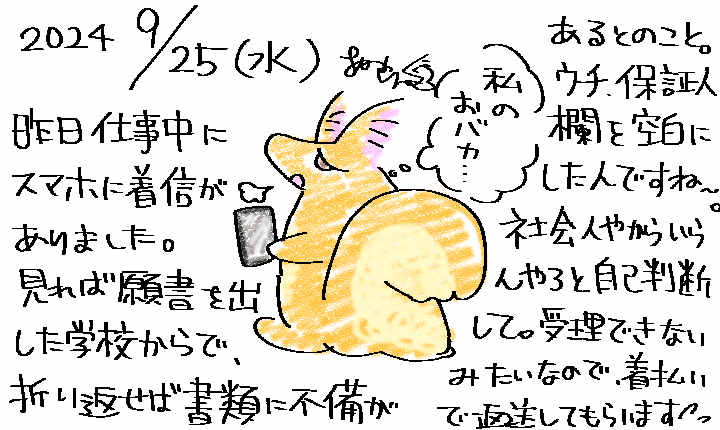 2024 9/25(水)
昨日仕事中に
スマホに着信が
ありました。
見れば願書を出
した学校からで、
折り返せば書類に不備が
あるとのこと。
ウチ、保証人
欄を空白に
した人ですね〜。
社会人やからいら
んやろと自己判断
して。受理できない
みたいなので、着払い
で返送してもらいます
私
の
おバカ…